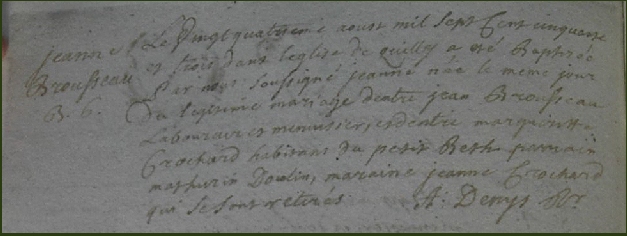 jeanne
Brousseau
B. 6.
Le Vingt quatrieme aoust mil sept Cent cinquante
et trois dans leglise de quilly a eté Baptisée
par nous soussigné jeanne née le meme jour
Du legitime mariage dentre jean Brousseau
Laboureur et menuisier, et dentre margueritte
Crochard habitans du petit Beth parrain
mathurin Doulin, maraine jeanne Crochard
qui se sont retirés A. Denys Rr